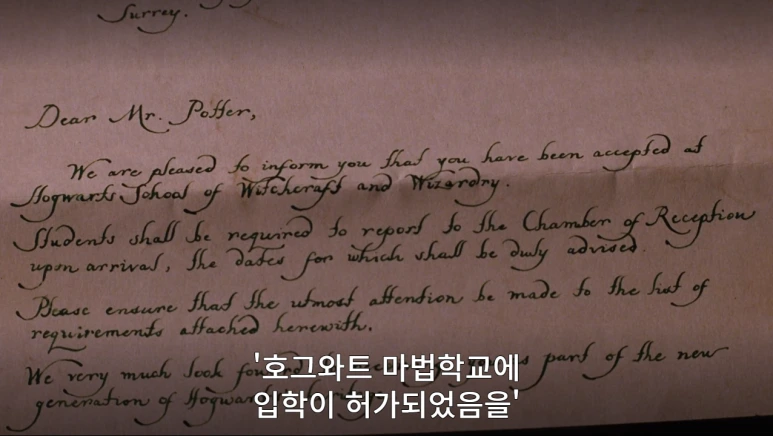 Surrey.
Dear Mr. Potter,
We are pleased to inform you that you have been accepted at
Hogwarts School of Witchcraft and Wizardry.
Students shall be required to report to the Chamber of Reception
upon arrival, the dates for which shall be duly advised.
Please ensure that the utmost attention be made to the list of
requirements attached herewith.
We very much look part of the new
generation of Hogwarts
'호그와트 마법학교에
입학이 허가되었음을'